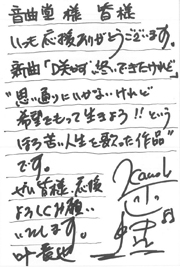 音曲堂 様 皆様
いつも応援ありがとうございます。
新曲「
"思い通りにいかないけれど
希望をもって生きよう!! という
ほろ苦い人生を歌った作品"
です。
ぜひ皆様、応援
よろしくお願い
いたします。